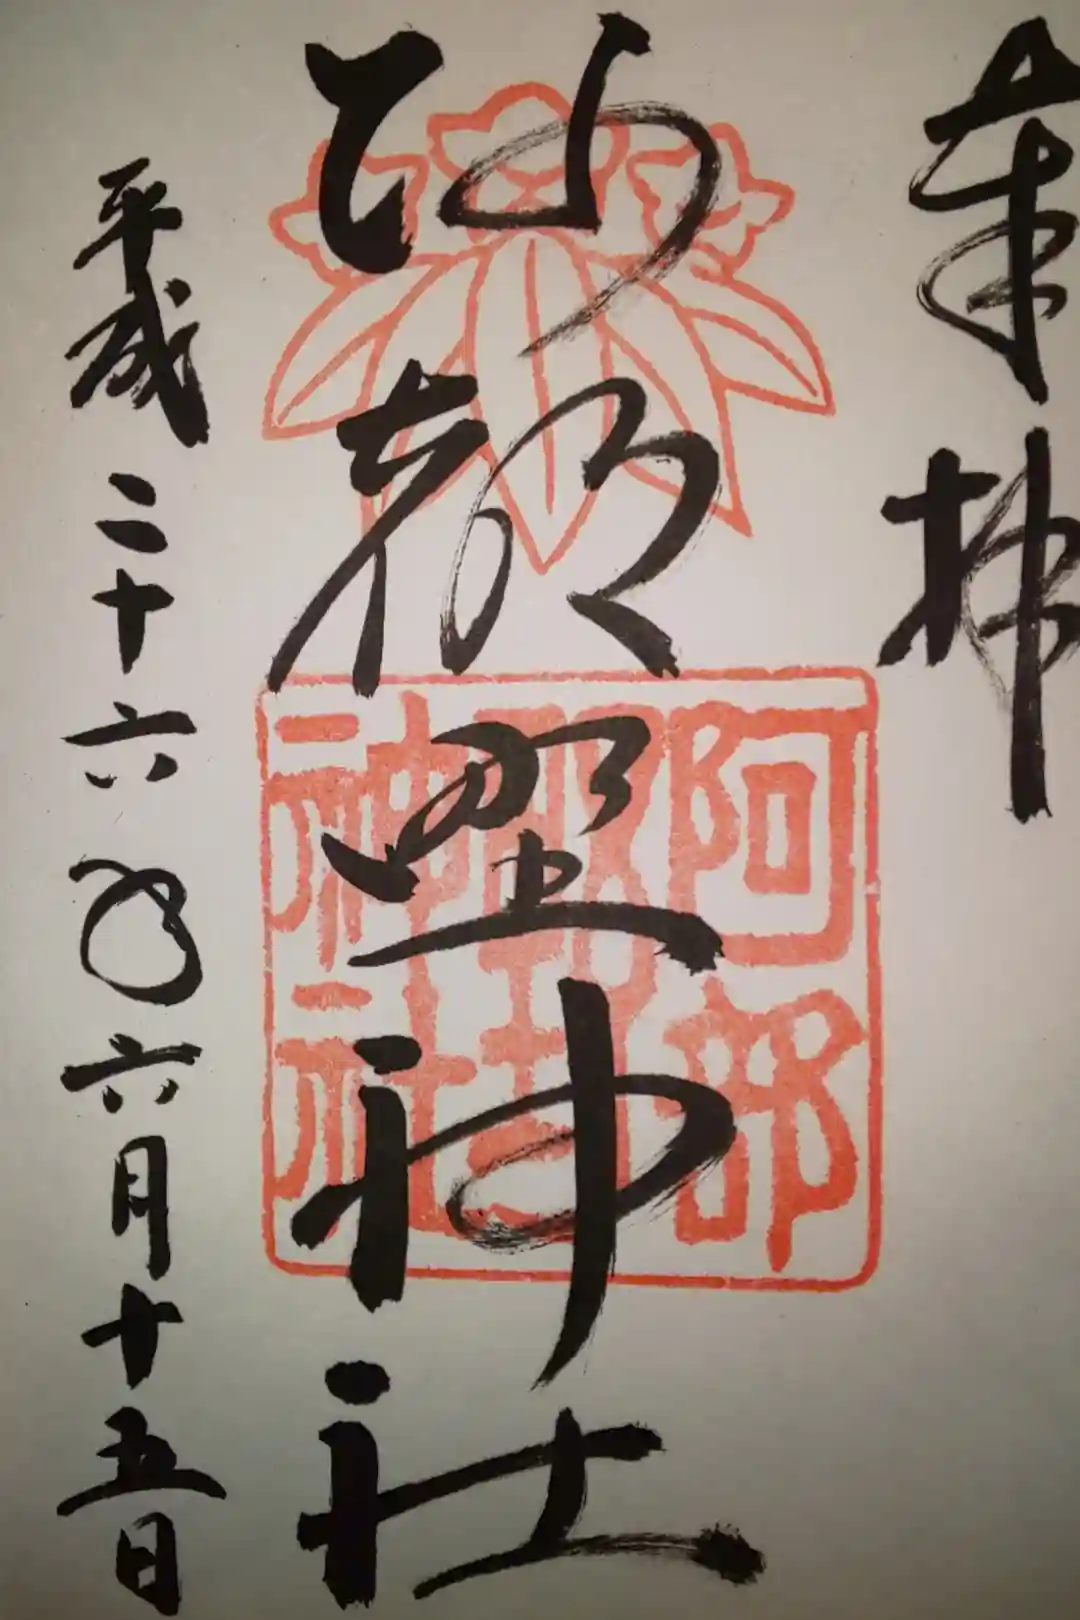 奉拝
阿部野神社
阿部野神社
平成二十六年六月十五日